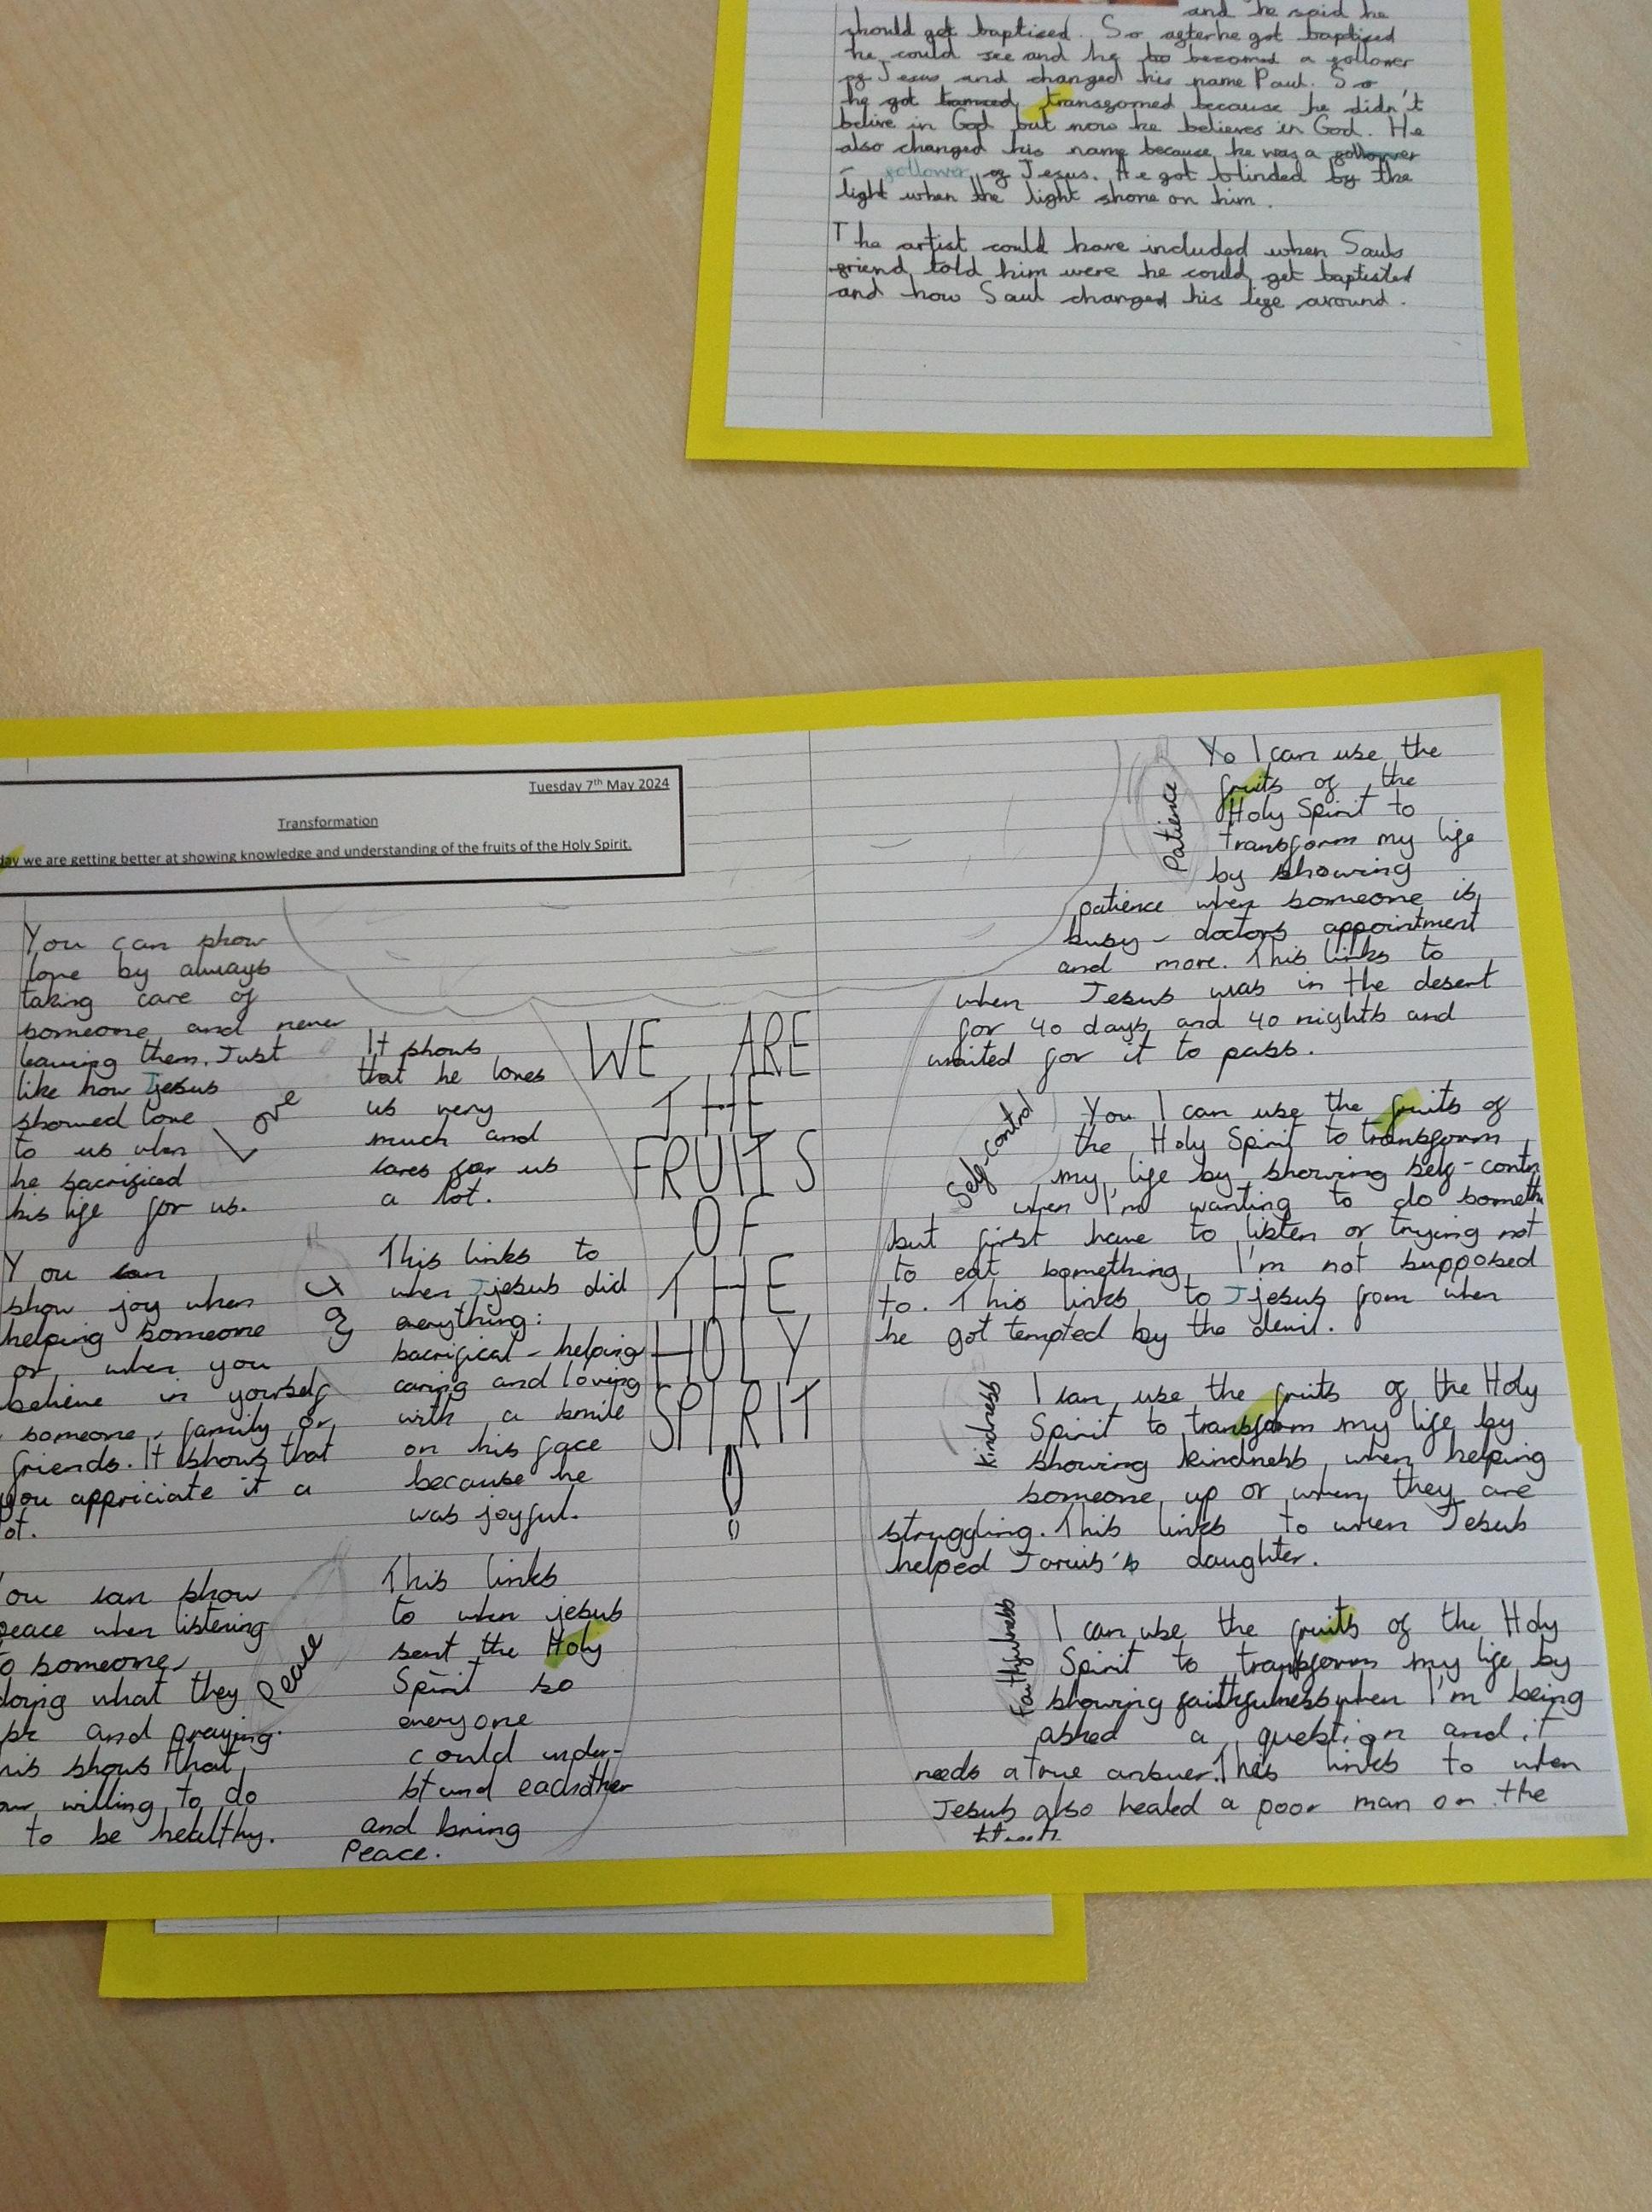 and he said he
should get baptised. So after he got baptised
he could see and he to becomed a follower
of Jesus and changed his name Paul. So
he got transformed because he didn't
belive in God but now he believes in God. He
also changed his name because he was a follower
follower of Jesus. He got blinded by the
light when the light shone on him.
The artist could have included when Sauls
friend told him were he could get baptisted
and how Saul changed his life around.
Tuesday 7th May 2024
Transformation
day we are getting better at showing knowledge and understanding of the fruits of the Holy Spirit.
You can show
love by always
taking care of
someone and never
leaving them. Just
like how Jesus
showed love
to us when
he sacrificed
his life for us.
Love
It shows
that he loves
us very
much and
cares for us
a lot.
You can
show joy when
helping someone
or when you
believe in yourself
someone, family or
friends. It shows that
you appriciate it a
lot.
Joy
This links to
when Jjesus did
everything:
sacrifical - helping
caring and loving
with a smile
on his face
because he
was joyful.
You can show
peace when listening
to someone,
doing what they
and praying.
his shows that
willing to do
to be healthy.
Peace
This links
to when jesus
sent the Holy
Spirit so
everyone
could under-
stand eachother
and bring
Peace.
WE ARE
THE
FRUITS
OF
THE
HOLY
SPIRIT
!
Patience
Yo I can use the
fruits of the
Holy Spirit to
transform my life
by showing
patience when someone is
busy - doctors appointment
and more. This links to
when Jesus was in the desert
for 40 days and 40 nights and
waited for it to pass.
Self-control
You I can use the fruits of
the Holy Spirit to transform
my life by showing self-contr
when I'm wanting to do someth
but first have to listen or trying not
to eat something I'm not supposed
to. This links to Jjesus from when
he got tempted by the devil.
Kindness
I can use the fruits of the Holy
Spirit to transform my life by
showing kindness when helping
someone up or when they are
struggling. This links to when Jesus
helped Jarius's daughter.
Faithfulness
I can use the fruits of the Holy
Spirit to transform my life by
showing faithfulness when I'm being
asked a question and it
needs a true answer. This links to when
Jesus also healed a poor man on the